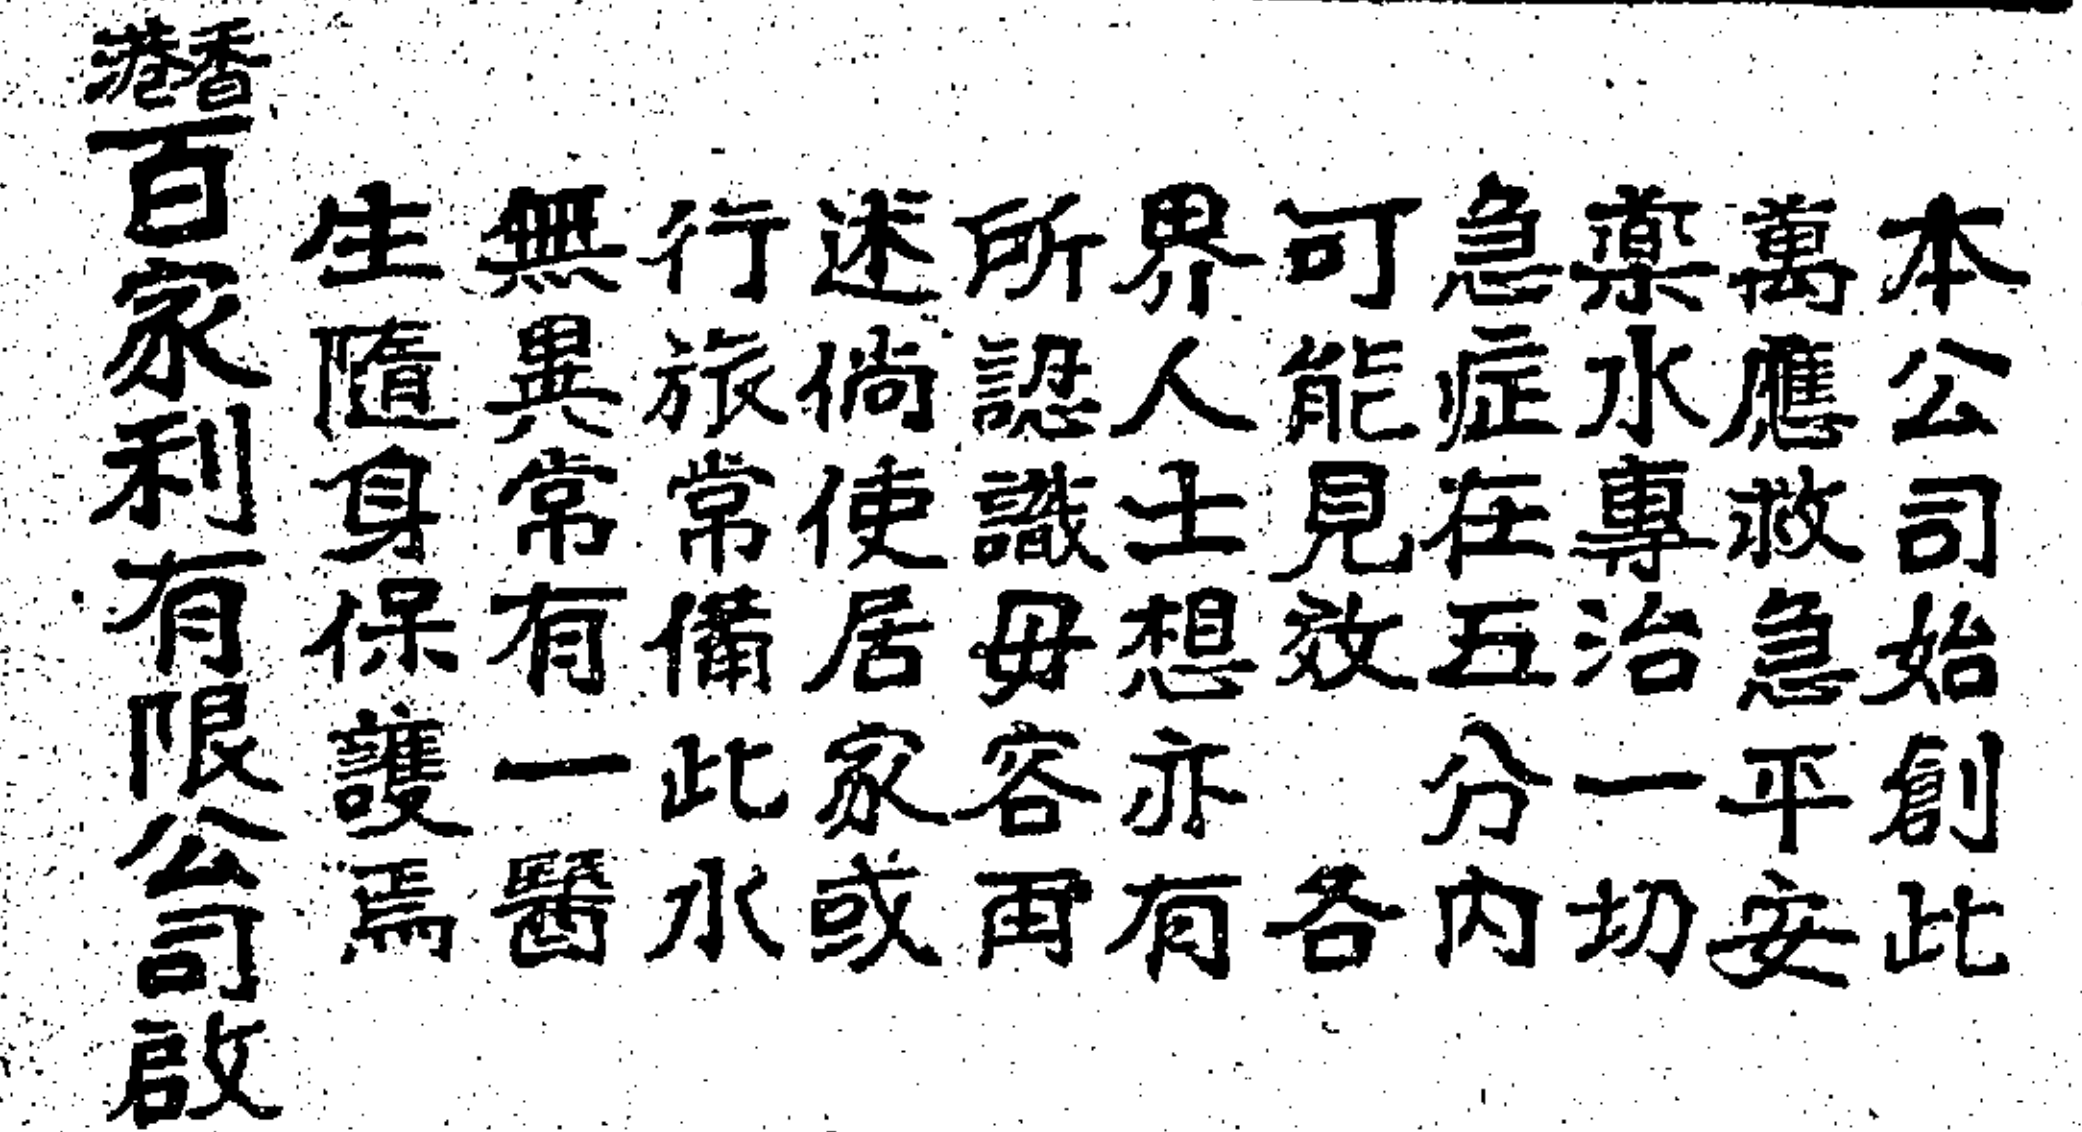 本公司始創此
萬應救急平安
藥水專治一切
急症在五分內
可能見效　各
界人士想亦有
所認識毋容再
述倘使居家或
行旅常備此水
無異常有一醫
生隨身保護焉
香港百家利有限公司啟